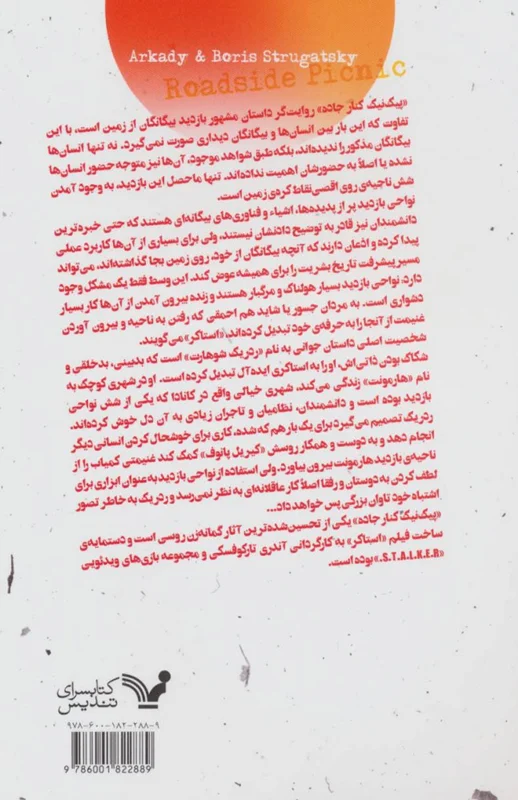 Arkady & Boris Strugatsky
Roadside Picnic
«پیک‌نیک کنار جاده» روایت‌گر داستان مشهور بازدید بیگانگان از زمین است، با این
تفاوت که این بار بین انسان‌ها و بیگانگان دیداری صورت نمی‌گیرد. نه تنها انسان‌ها
بیگانگان مذکور را ندیده‌اند، بلکه طبق شواهد موجود، آن‌ها نیز متوجه حضور انسان‌ها
نشده یا اصلاً به حضورشان اهمیت نداده‌اند. تنها ماحصل این بازدید، به وجود آمدن
شش ناحیه‌ی روی اقصی‌نقاط کره‌ی زمین است.
نواحی بازدید پر از پدیده‌ها، اشیاء و فناوری‌های بیگانه‌ای هستند که حتی خبره‌ترین
دانشمندان نیز قادر به توضیح دادنشان نیستند، ولی برای بسیاری از آن‌ها کاربرد عملی
پیدا کرده و اذعان دارند که آنچه بیگانگان از خود، روی زمین بجا گذاشته‌اند، می‌تواند
مسیر پیشرفت تاریخ بشریت را برای همیشه عوض کند. این وسط فقط یک مشکل وجود
دارد: نواحی بازدید بسیار هولناک و مرگبار هستند و زنده بیرون آمدن از آن‌ها کار بسیار
دشواری است. به مردان جسور یا شاید هم احمقی که رفتن به ناحیه و بیرون آوردن
غنیمت از آنجا را به حرفه‌ی خود تبدیل کرده‌اند، «استاکر» می‌گویند.
شخصیت اصلی داستان جوانی به نام «ردریک شوهارت» است که بدبینی، بدخلقی و
شکاک بودن ذاتی‌اش، او را به استاکری ایده‌آل تبدیل کرده است. او در شهری کوچک به
نام «هارمونت» زندگی می‌کند، شهری خیالی واقع در کانادا که یکی از شش نواحی
بازدید بوده است و دانشمندان، نظامیان و تاجران زیادی به آن دل خوش کرده‌اند.
ردریک تصمیم می‌گیرد برای یک بار هم که شده، کاری برای خوشحال کردن انسانی دیگر
انجام دهد و به دوست و همکار روسش «کیریل پانوف» کمک کند غنیمتی کمیاب را از
ناحیه‌ی بازدید هارمونت بیرون بیاورد. ولی استفاده از نواحی بازدید به عنوان ابزاری برای
لطف کردن به دوستان و رفقا اصلاً کار عاقلانه‌ای به نظر نمی‌رسد و ردریک به خاطر تصور
اشتباه خود تاوان بزرگی پس خواهد داد...
«پیک‌نیک کنار جاده» یکی از تحسین‌شده‌ترین آثار گمانه‌زن روسی است و دستمایه‌ی
ساخت فیلم «استاکر» به کارگردانی آندری تارکوفسکی و مجموعه بازی‌های ویدئویی
«S.T.A.L.K.E.R.» بوده است.
کتابسرای
تندیس
۹۷۸-۶۰۰-۱۸۲-۲۸۸-۹
9 786001 822889